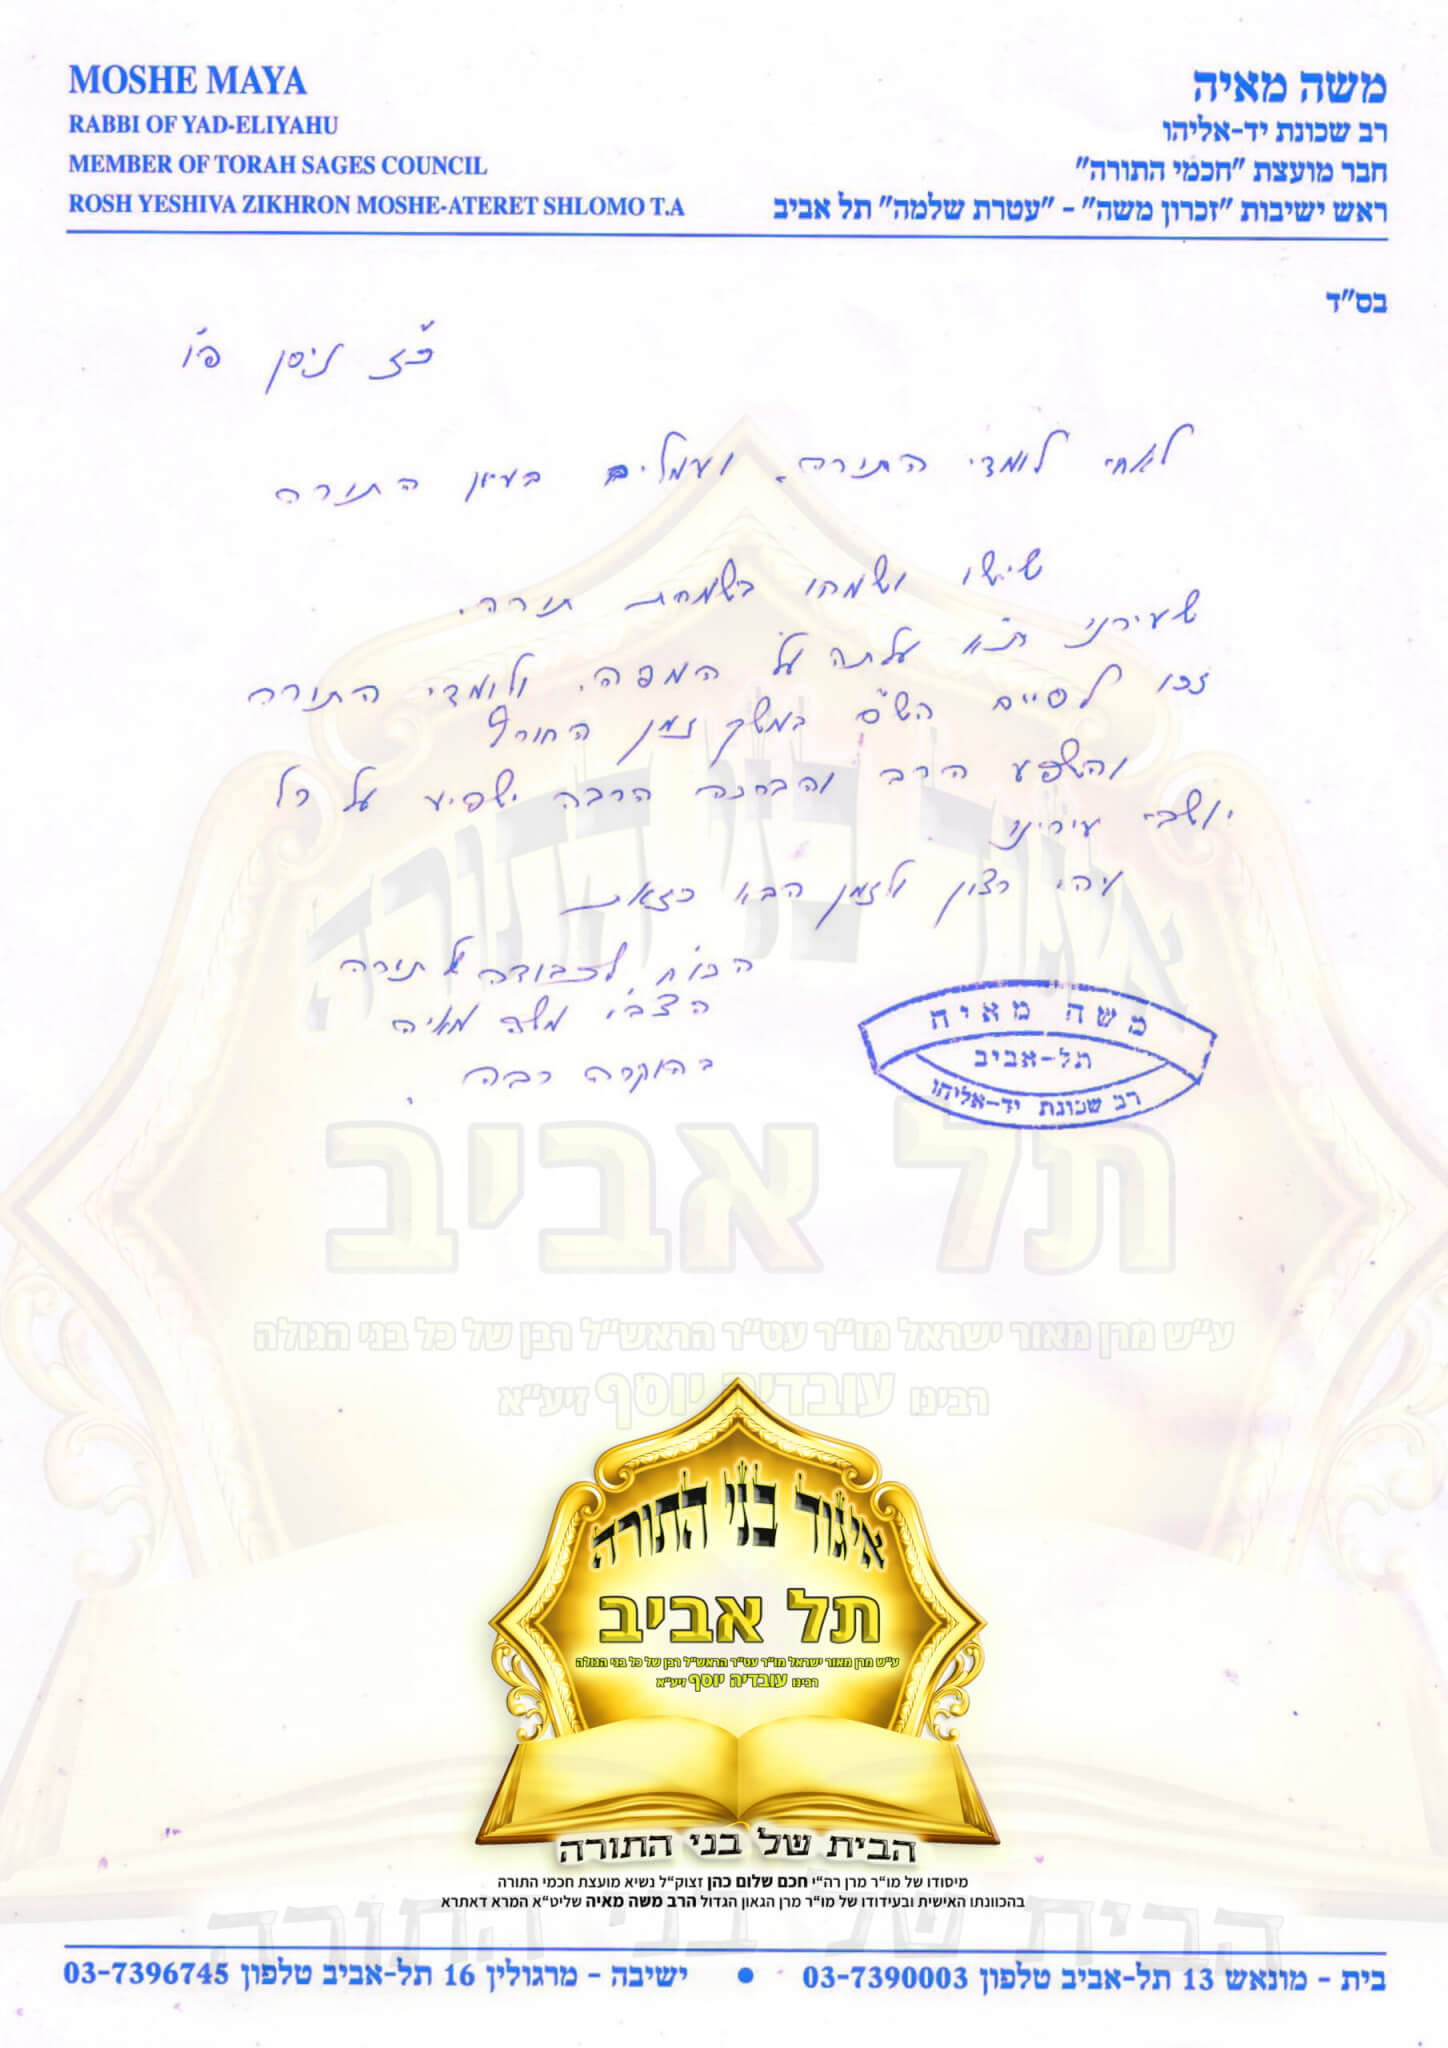 MOSHE MAYA
RABBI OF YAD-ELIYAHU
MEMBER OF TORAH SAGES COUNCIL
ROSH YESHIVA ZIKHRON MOSHE-ATERET SHLOMO T.A
משה מאיה
רב שכונת יד-אליהו
חבר מועצת "חכמי התורה"
ראש ישיבות "זכרון משה" - "עטרת שלמה" תל אביב
בס"ד
כ"ז ניסן פ"ו
לאחי לומדי התורה. ועמלים בעיון התורה
שישו ושמחו בשמחת תורה.
שעירנו ת"א עלתה על המפה. ולומדי התורה
זכו לסיים הש"ס במשך זמן החורף
והשפע הרב והברכה הרבה ישפיע על כל
יושבי עירינו
ויהי רצון ולזמן הבא כזאת
הכו"ח לכבודה של תורה
הצב"י משה מאיה
בהוקרה רבה
משה מאיה
תל-אביב
רב שכונת יד-אליהו
איגוד בני התורה
תל אביב
ע"ש מרן מאור ישראל מו"ר עט"ר הראש"ל רבן של כל בני הגולה
רבינו עובדיה יוסף זיע"א
איגוד בני התורה
תל אביב
ע"ש מרן מאור ישראל מו"ר עט"ר הראש"ל רבן של כל בני הגולה
רבינו עובדיה יוסף זיע"א
הבית של בני התורה
מיסודו של מו"ר מרן רה"י חכם שלום כהן זצוק"ל נשיא מועצת חכמי התורה
בהכוונתו האישית ובעידודו של מו"ר מרן הגאון הגדול הרב משה מאיה שליט"א המרא דאתרא
הבית של בני התורה
בית - מונאש 13 תל-אביב טלפון 03-7390003 • ישיבה - מרגולין 16 תל-אביב טלפון 03-7396745